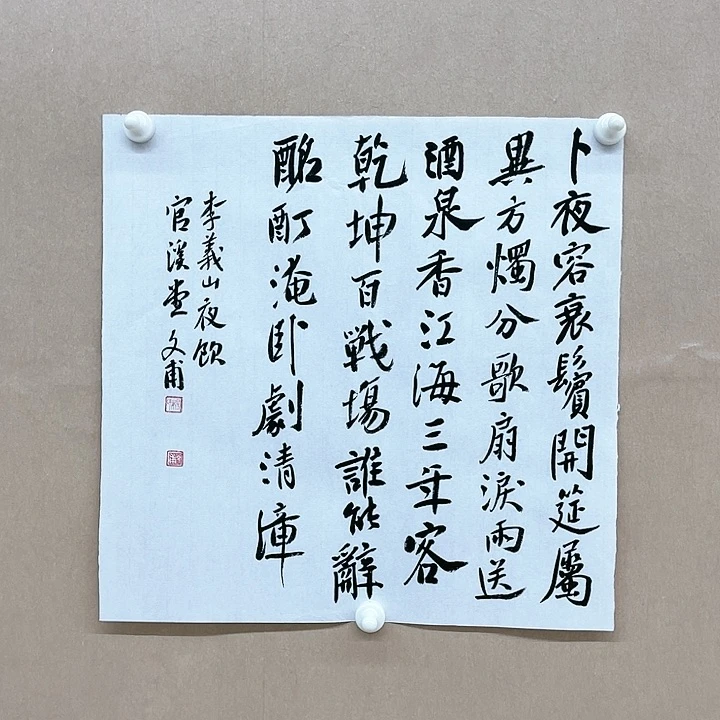 卜夜容衰鬢開筵屬
異方燭分歌扇淚雨送
酒泉香江海三年客
乾坤百戰場誰能辭
酩酊淹卧劇清漳
李義山夜飲
官溪堂文甫